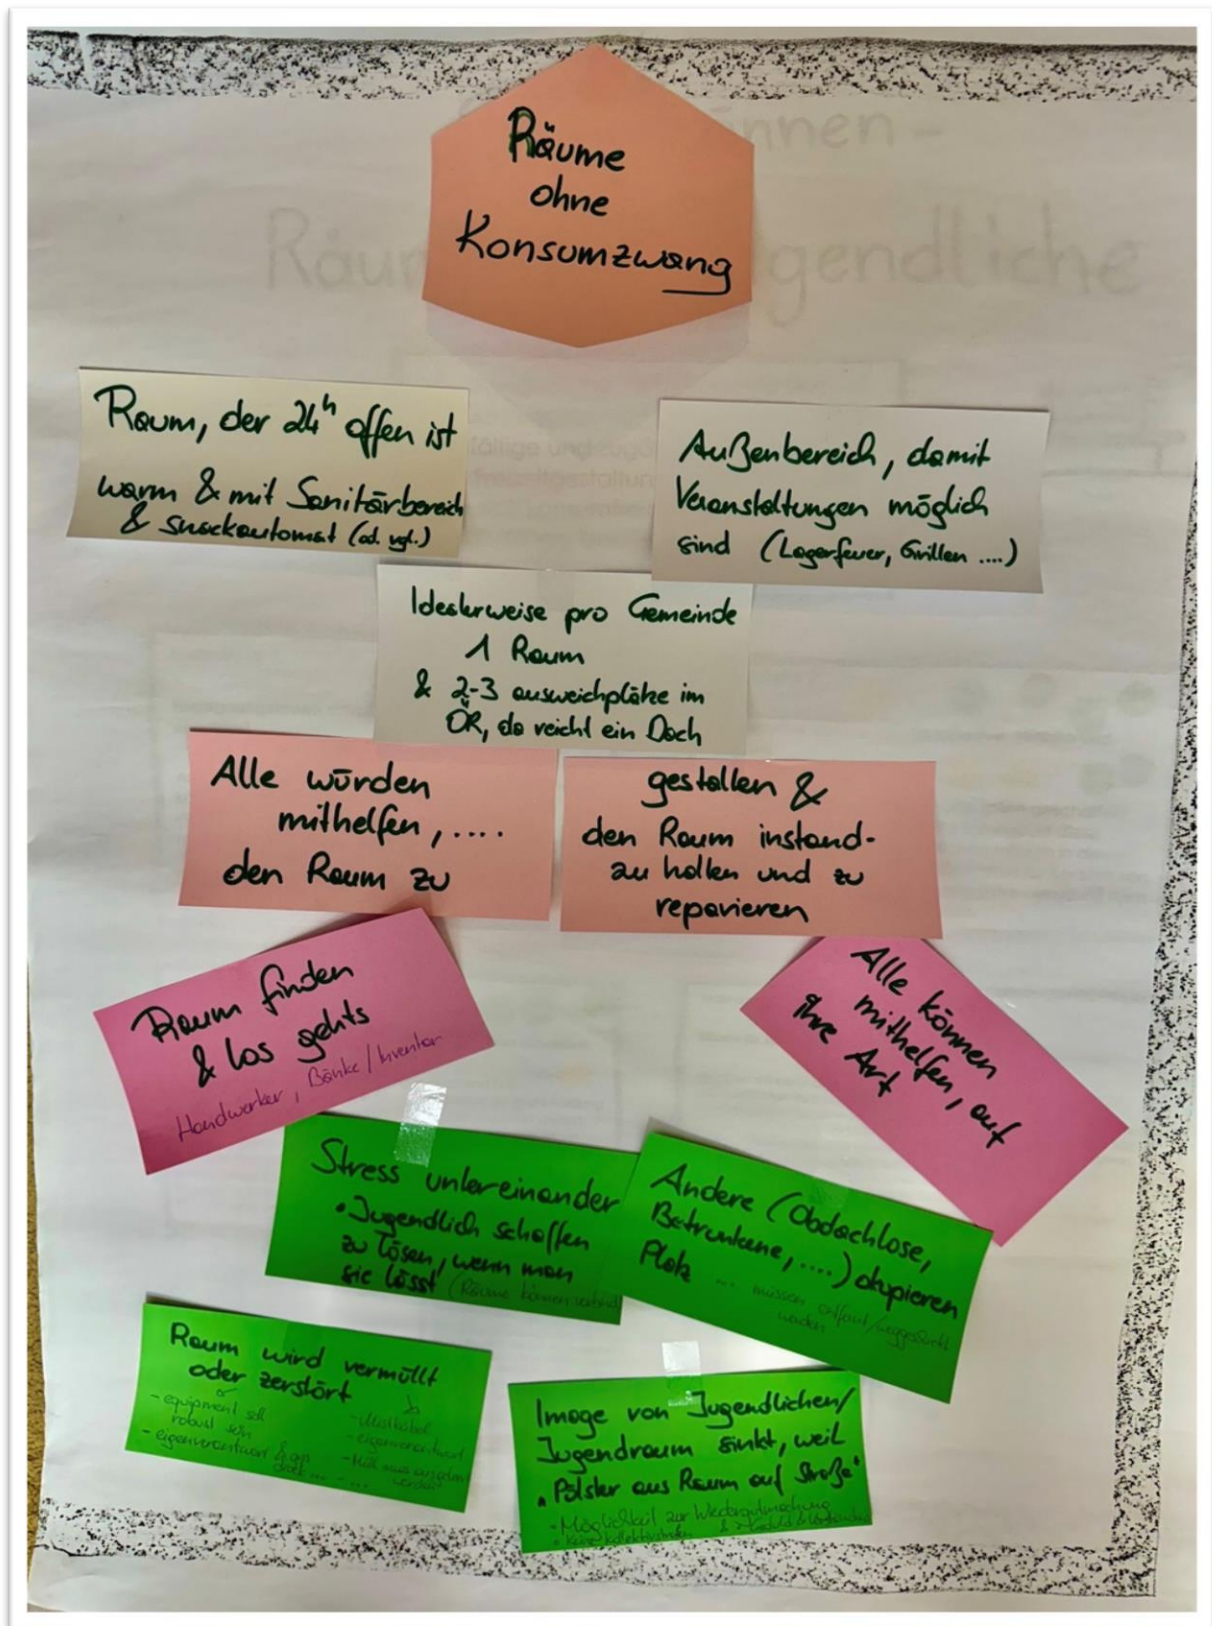 Räume
ohne
Konsumzwang
Raum, der 24h offen ist
warm & mit Sanitärbereich
& snackautomat (od. vgl.)
Außenbereich, damit
Veranstaltungen möglich
sind (Lagerfeuer, Grillen ....)
Idealerweise pro Gemeinde
1 Raum
& 2-3 ausweichplätze im
ÖR, da reicht ein Dach
Alle würden
mithelfen, ....
den Raum zu
gestalten &
den Raum instand-
zu halten und zu
reparieren
Raum finden
& los gehts
Handwerker, Bänke/Inventar
Alle können
mithelfen, auf
ihre Art
Stress untereinander
• Jugendlich schaffen
zu lösen, wenn man
sie lässt (Räume können
Andere (Obdachlose,
Betrunkene, ....) okupieren
Platz ... müssen
werden
Raum wird vermüllt
oder zerstört
- equipment soll
robust sein
- eigenverantwort
- Mistkübel
- eigenverantwort
- Müll
werden
Image von Jugendlichen/
Jugendraum sinkt, weil
"Pölster aus Raum auf Straße"
- Möglichkeit zur Wiedergutmachung